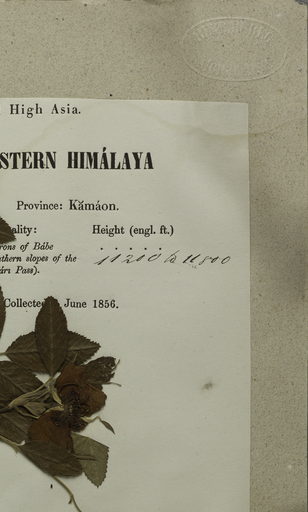 High Asia.
STERN HIMÁLAYA
Province: Kămáon.
ality: Height (engl. ft.)
rons of Bábe . . . . .
thern slopes of the 11200 to 11800
ári Pass).
Collected: June 1856.